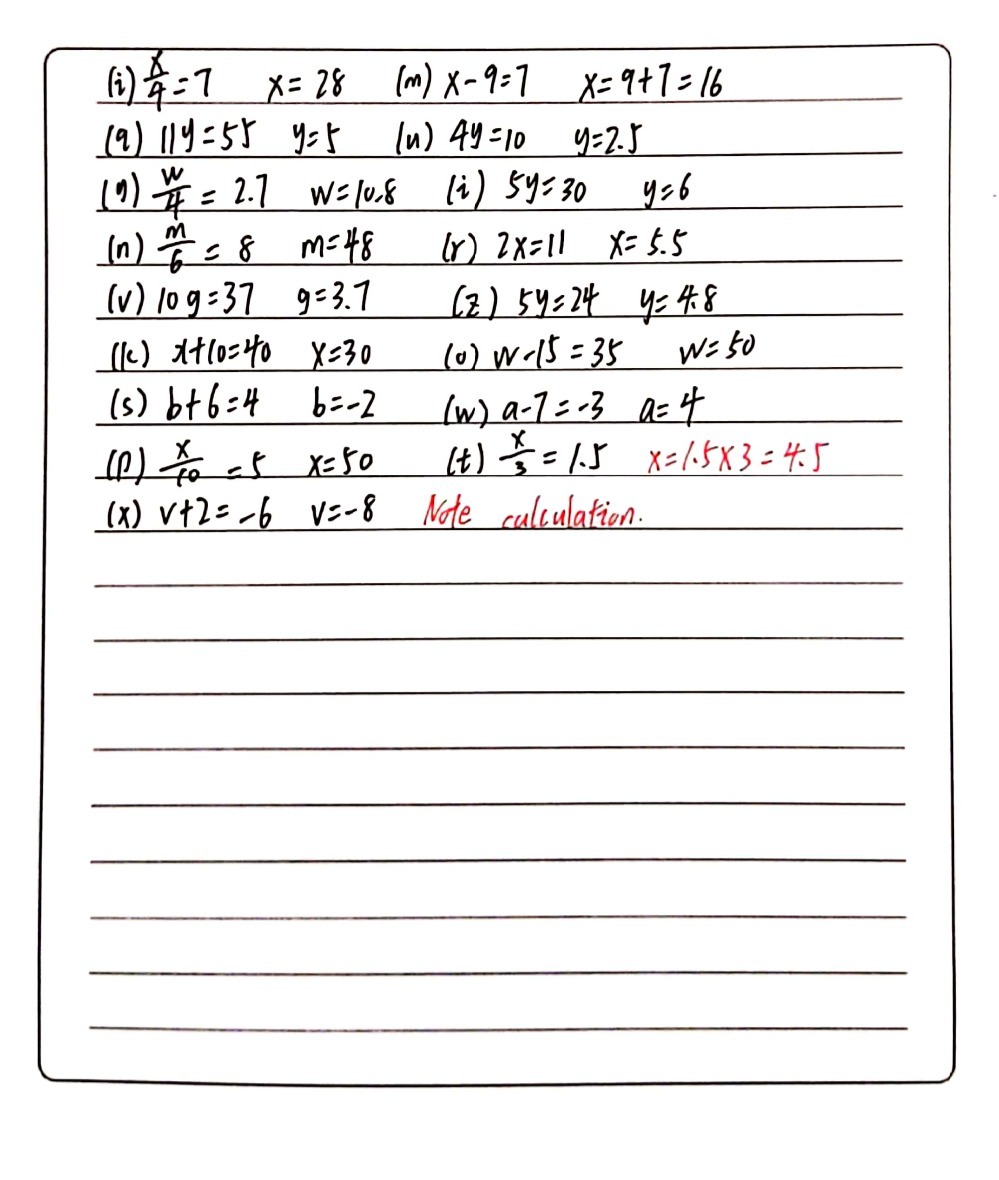 (i) x/4=7 x=28 (m) x-9=7 x=9+7=16
(q) 11y=55 y=5 (u) 4y=10 y=2.5
(y) w/4 = 2.7 w=10.8 (i) 5y=30 y=6
(n) m/6 = 8 m=48 (r) 2x=11 x=5.5
(v) 10g=37 g=3.7 (z) 5y=24 y=4.8
(k) x+10=40 x=30 (o) w-15=35 w=50
(s) b+6=4 b=-2 (w) a-7=-3 a=4
(p) x/10 =5 x=50 (t) x/3 = 1.5 x=1.5x3=4.5
(x) v+2=-6 v=-8 Note calculation.